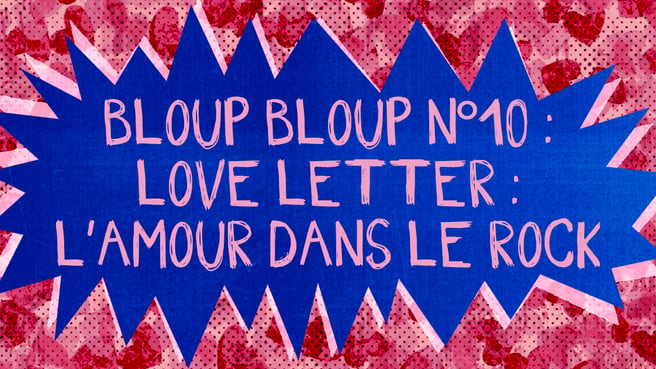 BLOUP BLOUP N°10 :
LOVE LETTER :
L'AMOUR DANS LE ROCK